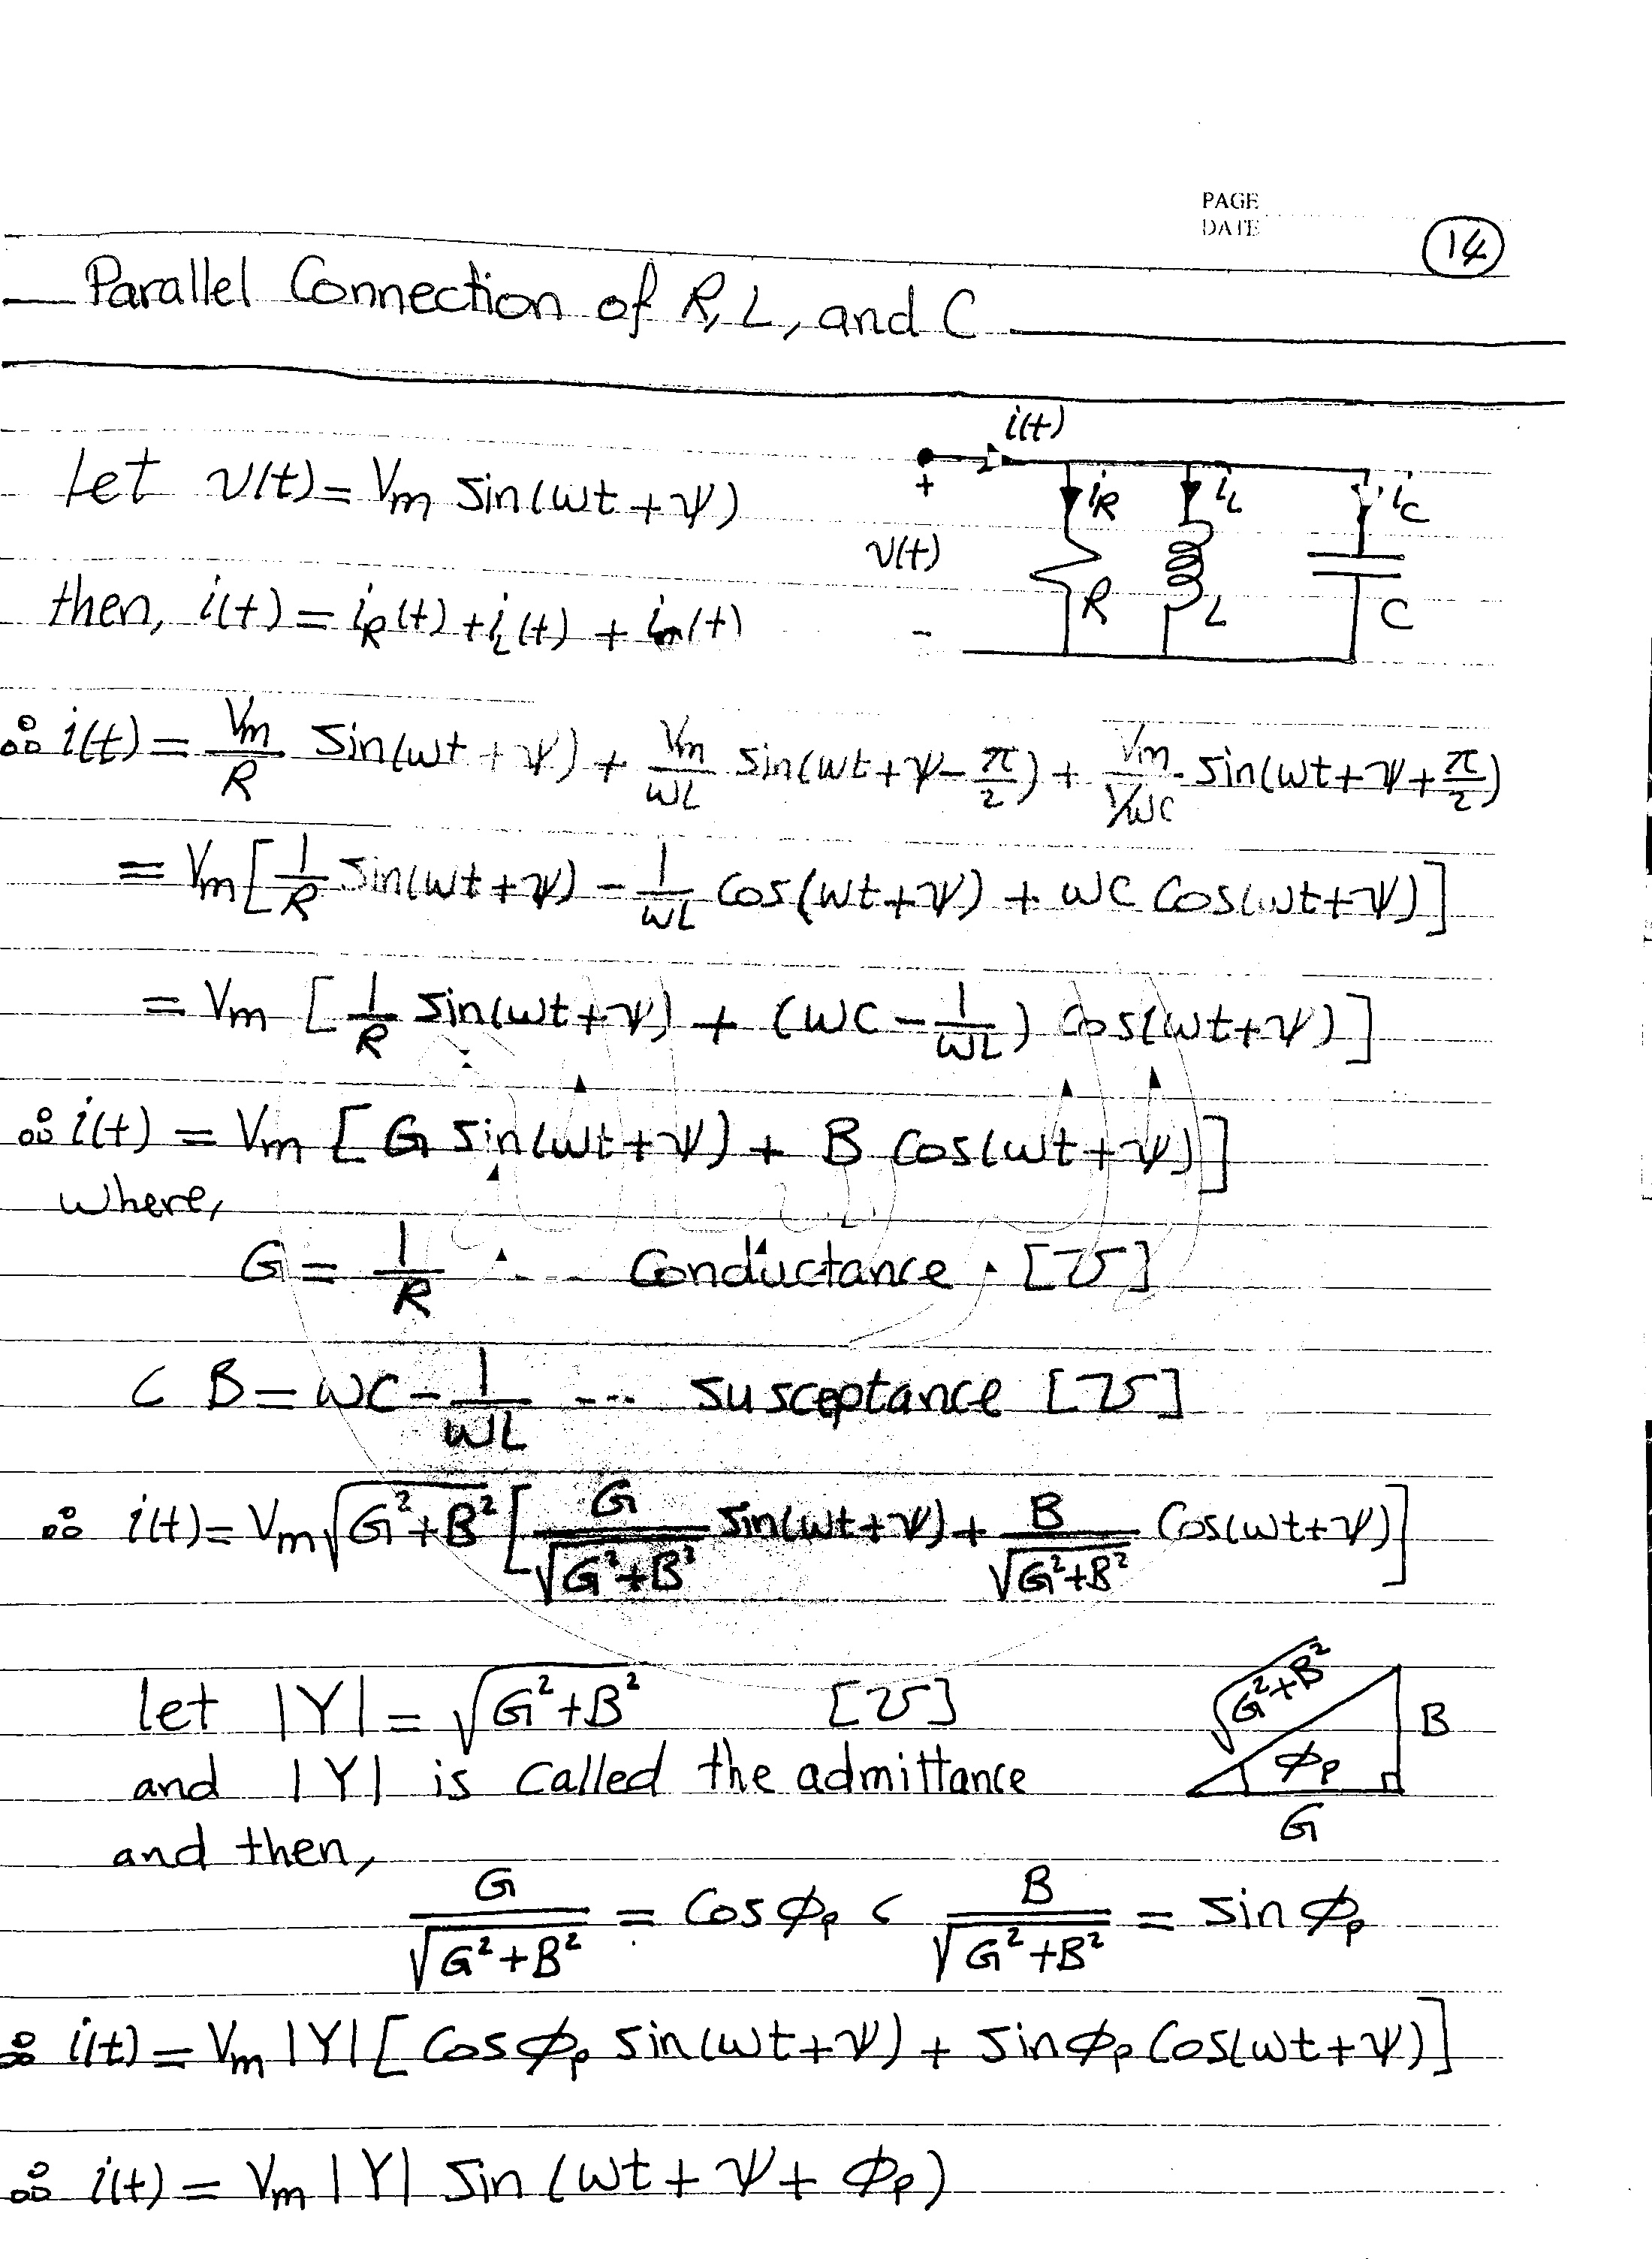 PAGE
DATE
14
Parallel Connection of R, L, and C
Let v(t) = Vm sin(ωt + ψ)
i(t)
+
iR
iL
iC
v(t)
R
L
C
-
then, i(t) = iR(t) + iL(t) + (t)
∴ i(t) = Vm/R sin(ωt + ψ) + Vm/ωL sin(ωt + ψ - π/2) + Vm/(1/ωC) sin(ωt + ψ + π/2)
= Vm [1/R sin(ωt + ψ) - 1/ωL cos(ωt + ψ) + ωC cos(ωt + ψ)]
= Vm [1/R sin(ωt + ψ) + (ωC - 1/ωL) cos(ωt + ψ)]
∴ i(t) = Vm [G sin(ωt + ψ) + B cos(ωt + ψ)]
where,
G = 1/R ... Conductance [℧]
، B = ωC - 1/ωL ... susceptance [℧]
∴ i(t) = Vm √(G² + B²) [G/√(G² + B²) sin(ωt + ψ) + B/√(G² + B²) cos(ωt + ψ)]
let |Y| = √(G² + B²) [℧]
and |Y| is called the admittance
√(G² + B²)
B
ϕp
G
and then,
G/√(G² + B²) = cos ϕp ، B/√(G² + B²) = sin ϕp
∴ i(t) = Vm |Y| [cos ϕp sin(ωt + ψ) + sin ϕp cos(ωt + ψ)]
∴ i(t) = Vm |Y| sin(ωt + ψ + ϕp)